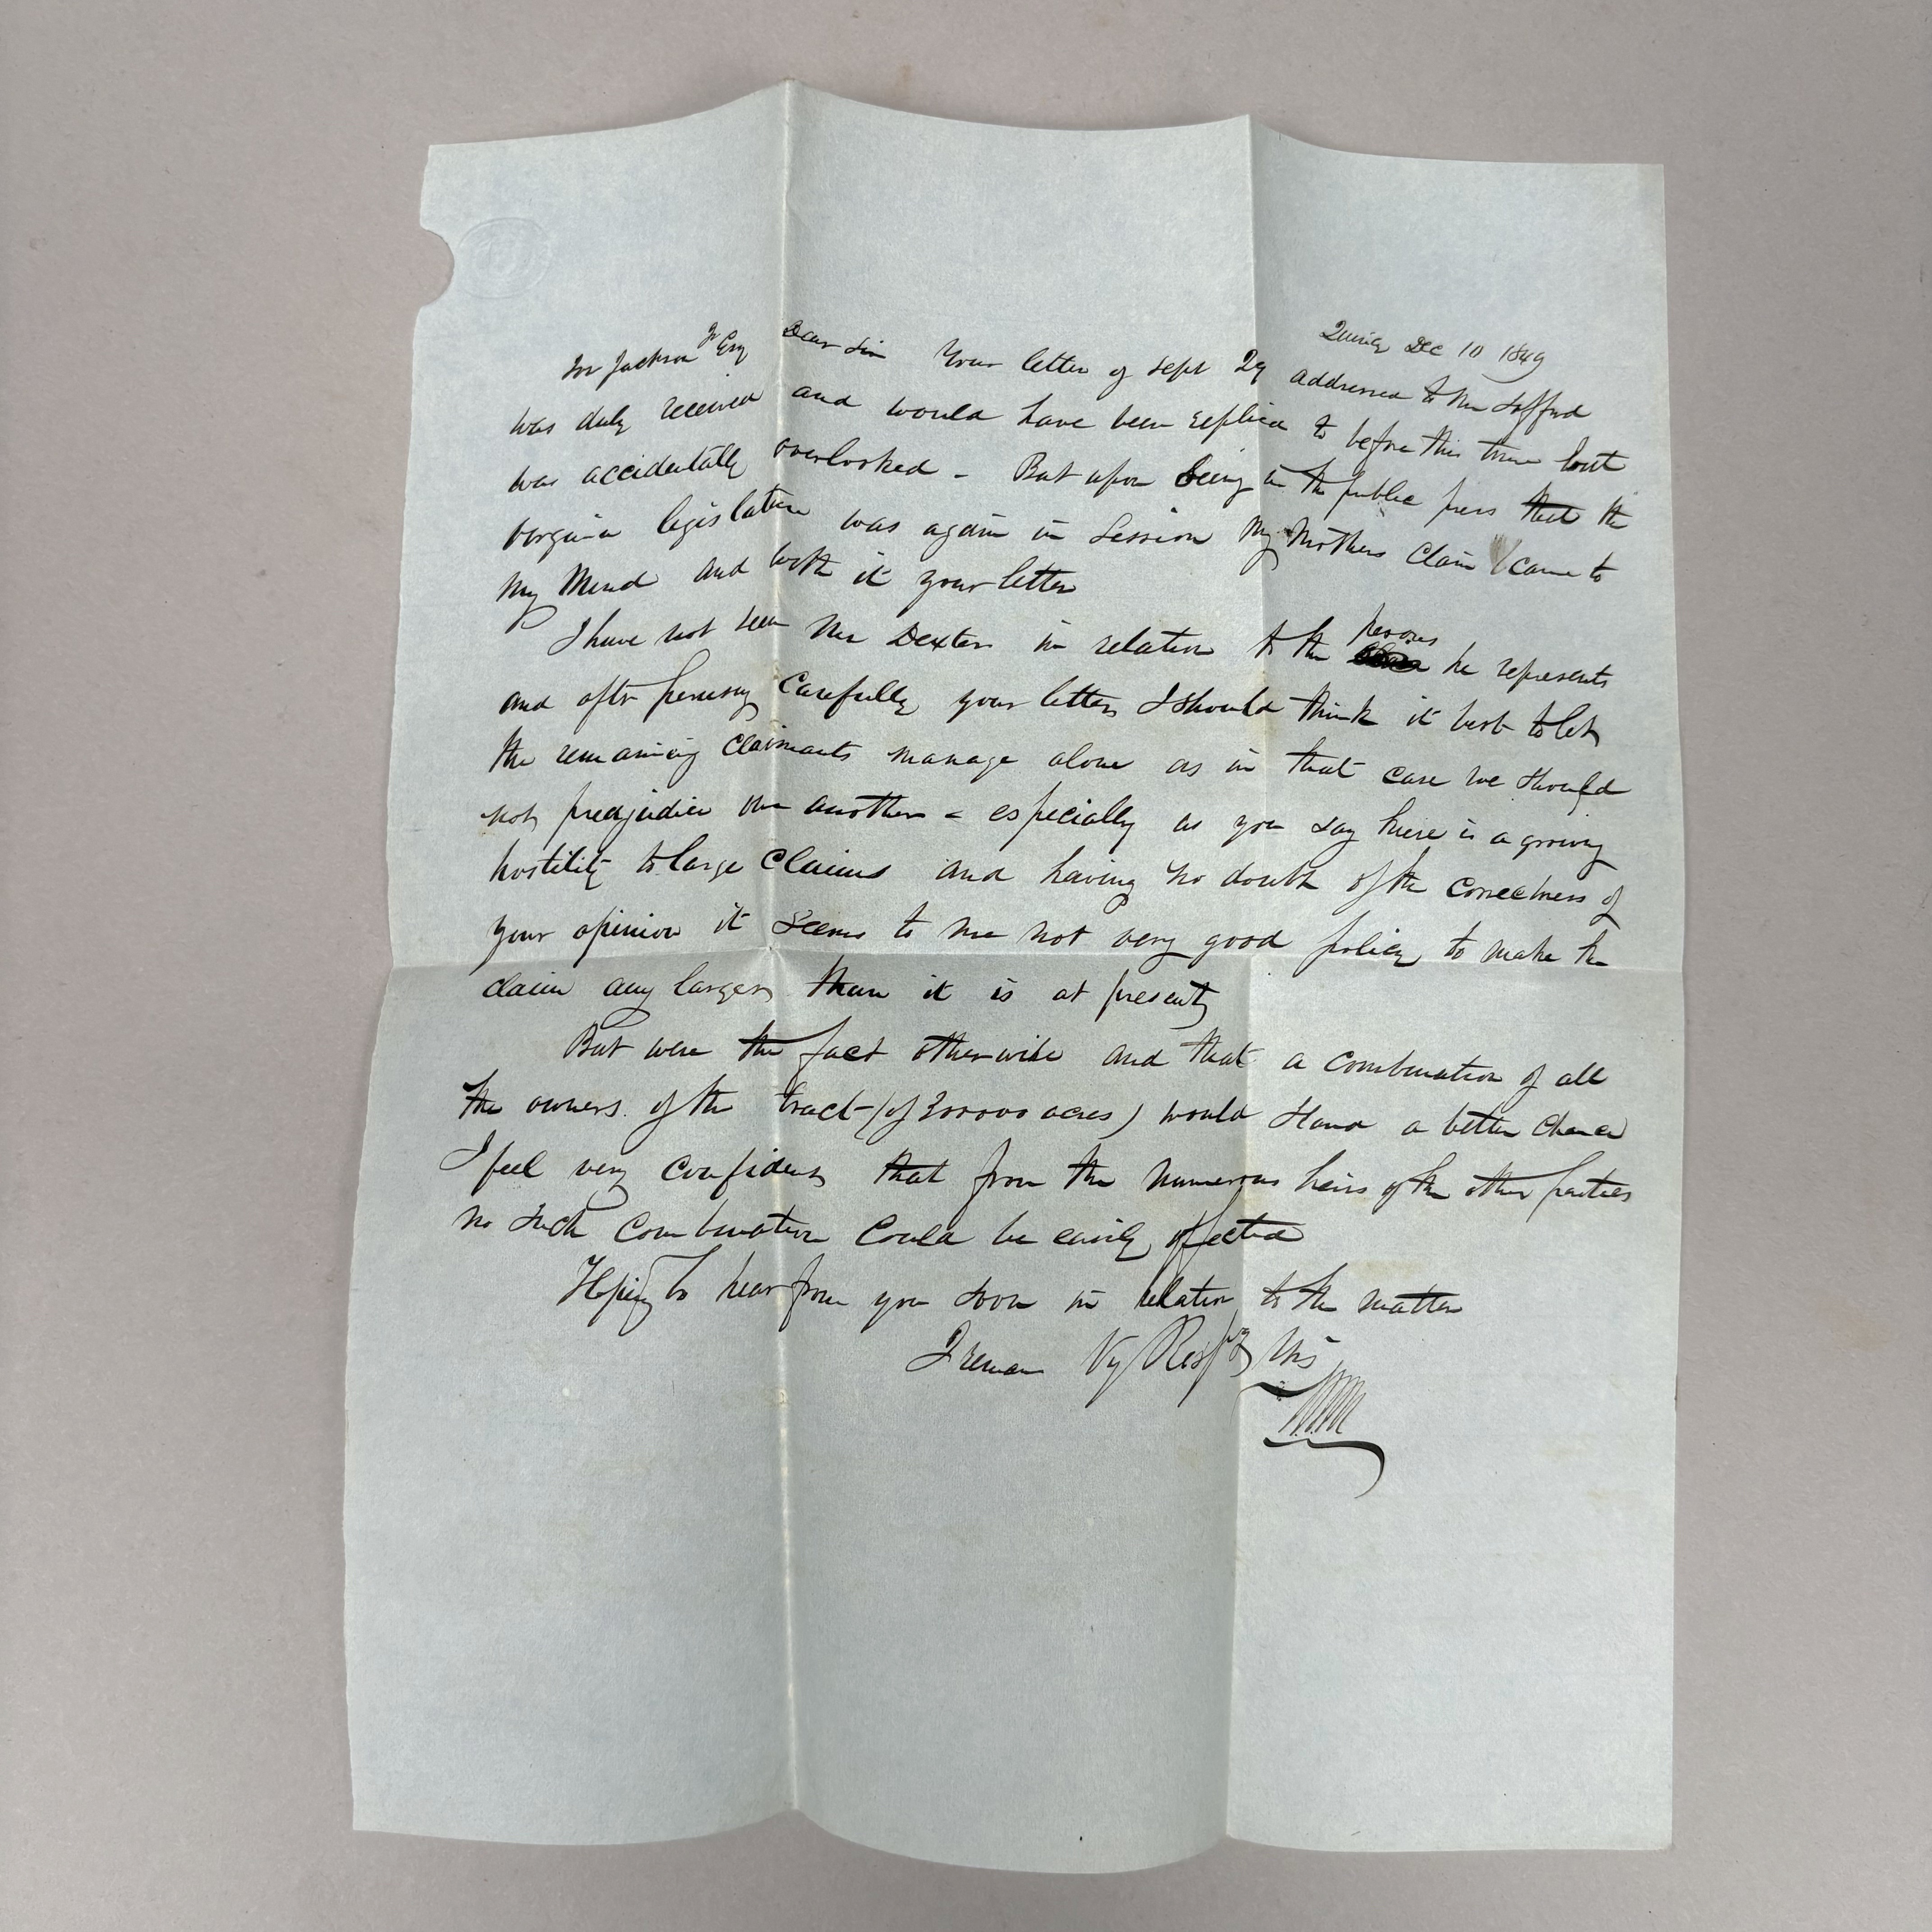 Quincy Dec 10 1849
Jackson Jr Esq Dear Sir Your letter of Sept 29 addressed to Mr Safford
was duly received and would have been replied to before this time but
was accidentally overlooked - But upon seeing in the public press that the
Virginia legislature was again in Session My Mothers Claim came to
My Mind and with it your letter
I have not seen Mr Dexter in relation to the persons he represents
and after perusing Carefully your letter, I should think it best to let
the remaining Claimants manage alone as in that case we should
not predjudice one another - especially as you say there is a growing
hostility to large Claims and having no doubt of the correctness of
your opinion it seems to me not very good policy to make the
claim any larger than it is at present
But were the fact otherwise and that a combination of all
the owners of the tract (of 300000 acres) would stand a better chance
I feel very confident that from the numerous heirs of the other parties
no such combination could be easily effected
Hoping to hear from you soon in relation to the matter
I remain Vy Respy Yrs